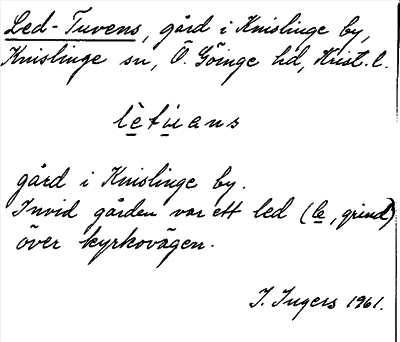 Led-Tuvens, gård i Knislinge by,
Knislinge sn, Ö. Göinge hd, Krist. l.
lètu̱ans
gård i Knislinge by.
Invid gården var ett led (le, grind)
över kyrkovägen.
I. Ingers 1961.